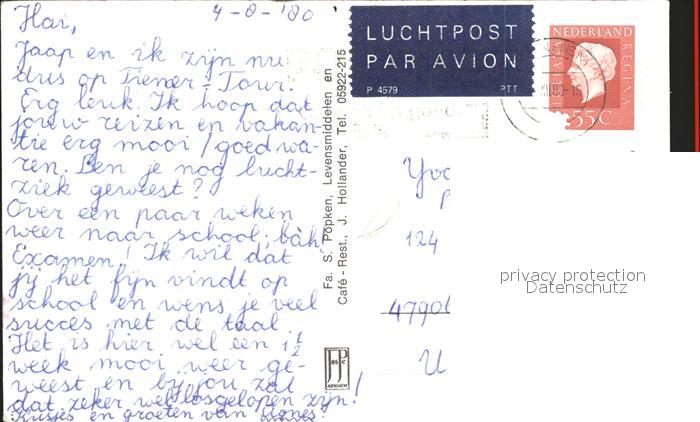 4-8-'80
Hai,
Jaap en ik zijn nu
dus op Tiener-Tour.
Erg leuk. Ik hoop dat
jouw reizen en vakan-
tie erg mooi / goed wa-
ren. Ben je nog lucht-
ziek geweest?
Over een paar weken
weer naar school; bàh!
Examen! Ik wil dat
jij het fijn vindt op
school en wens je veel
succes met de taal
Het is hier wel een 1 1/2
week mooi weer ge-
weest en bij jou zal
dat zeker wel losgelopen zijn!
Kusjes en groeten van Agnes!
Fa. S. Popken, Levensmiddelen en
Café - Rest., J. Hollander, Tel. 05922-215
JosPé
ARNHEM
LUCHTPOST
PAR AVION
P 4579 PTT
NEDERLAND
JULIANA REGINA
55C
80-16
Yvo
124
4790
U
privacy protection
Datenschutz